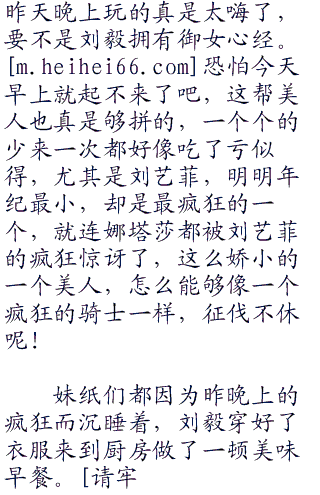 昨天晚上玩的真是太嗨了，
要不是刘毅拥有御女心经。
[m.heihei66.com]恐怕今天
早上就起不来了吧，这帮美
人也真是够拼的，一个个的
少来一次都好像吃了亏似
得，尤其是刘艺菲，明明年
纪最小，却是最疯狂的一
个，就连娜塔莎都被刘艺菲
的疯狂惊讶了，这么娇小的
一个美人，怎么能够像一个
疯狂的骑士一样，征伐不休
呢！
妹纸们都因为昨晚上的
疯狂而沉睡着，刘毅穿好了
衣服来到厨房做了一顿美味
早餐。[请牢